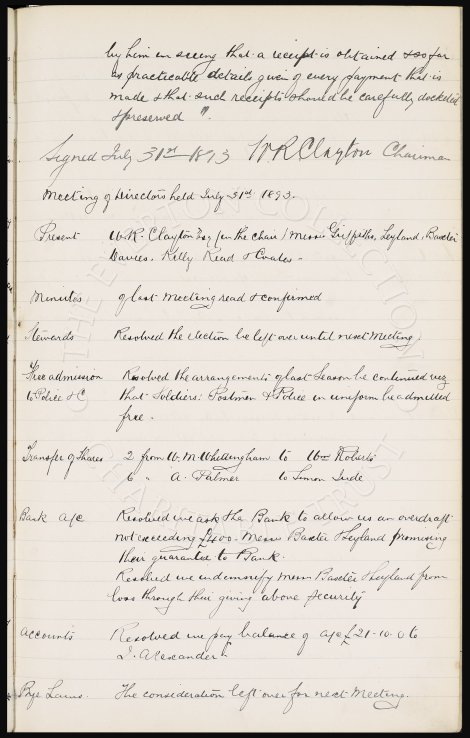 by him in seeing that a receipt is obtained & so far
as practicable details given of every payment that is
made & that such receipts should be carefully docketed
& preserved".
Signed July 31st 1893 W R Clayton Chairman
Meeting of Directors held July 31st 1893.
Present W. R. Clayton Esq (in the chair) Messrs Griffiths, Leyland, Baxter
Davies, Kelly Read & Coates.
Minutes of last Meeting read & confirmed
Stewards Resolved the election be left over until next Meeting.
Free admission Resolved the arrangements of last Season be continued viz
to Police &c that Soldiers: Postmen & Police in uniform be admitted
free.
Transfer of Shares 2 from W. M. Whittingham to Wm Roberts
6 " A. Palmer to Simon Jude
Bank a/c Resolved we ask the Bank to allow us an overdraft
not exceeding £400. Messrs Baxter & Leyland promising
their guarantee to Bank.
Resolved we indemnify Messrs Baxter & Leyland from
loss through their giving above security
Accounts Resolved we pay balance of a/c £21-10-0 to
J. Alexander
Bye Laws. The consideration left over for next Meeting.
THE EVERTON COLLECTION
CHARITABLE TRUST